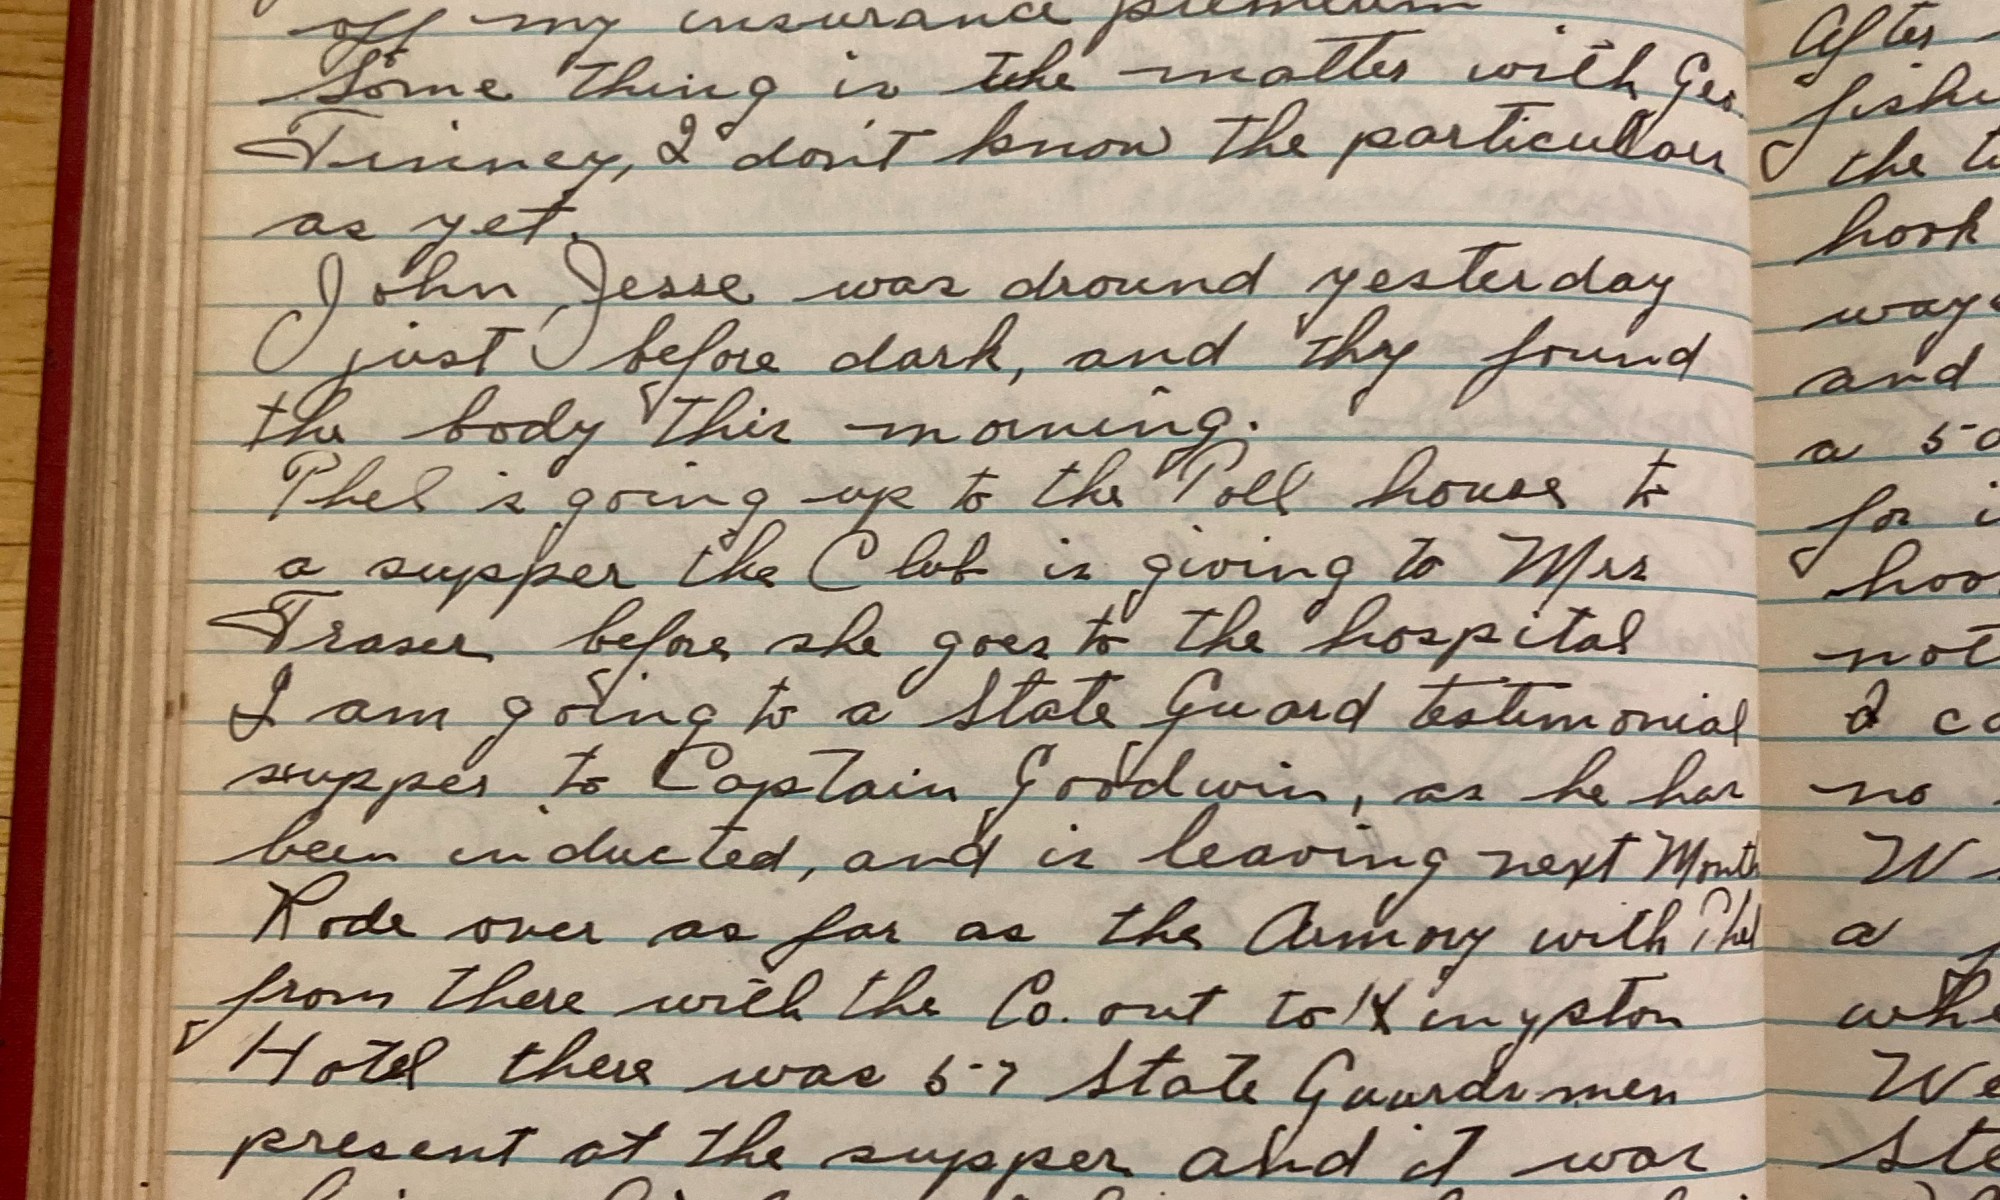 off my insurance premium
Some thing is the matter with Geo
Finney, I don't know the particulars
as yet.
John Jesse was dround yesterday
just before dark, and thy found
the body this morning.
Phel is going up to the Poll house to
a supper the Club is giving to Mrs
Fraser before she goes to the hospital
I am going to a State Guard testimonial
supper to Captain Goodwin, as he has
been inducted, and is leaving next Month
Rode over as far as the Armory with Phel
from there with the Co. out to Kingston
Hotel there was 57 State Guardsmen
present at the supper and it was
After
the
hook
and
a
for
not
I
no
W
a
We